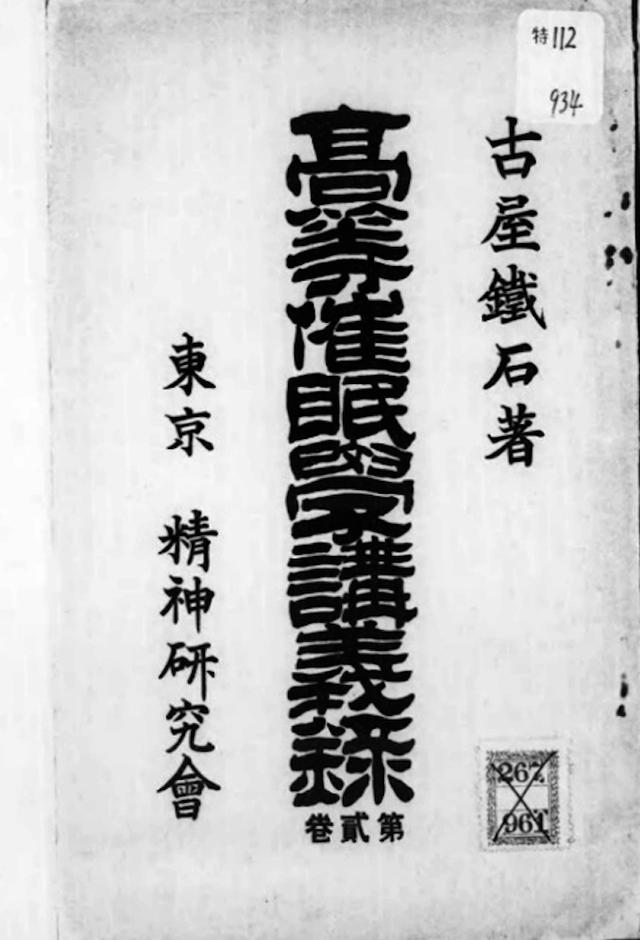 特112
934
古屋鐵石著
高等催眠學講義錄
第貳卷
東京 精神研究會
267
961